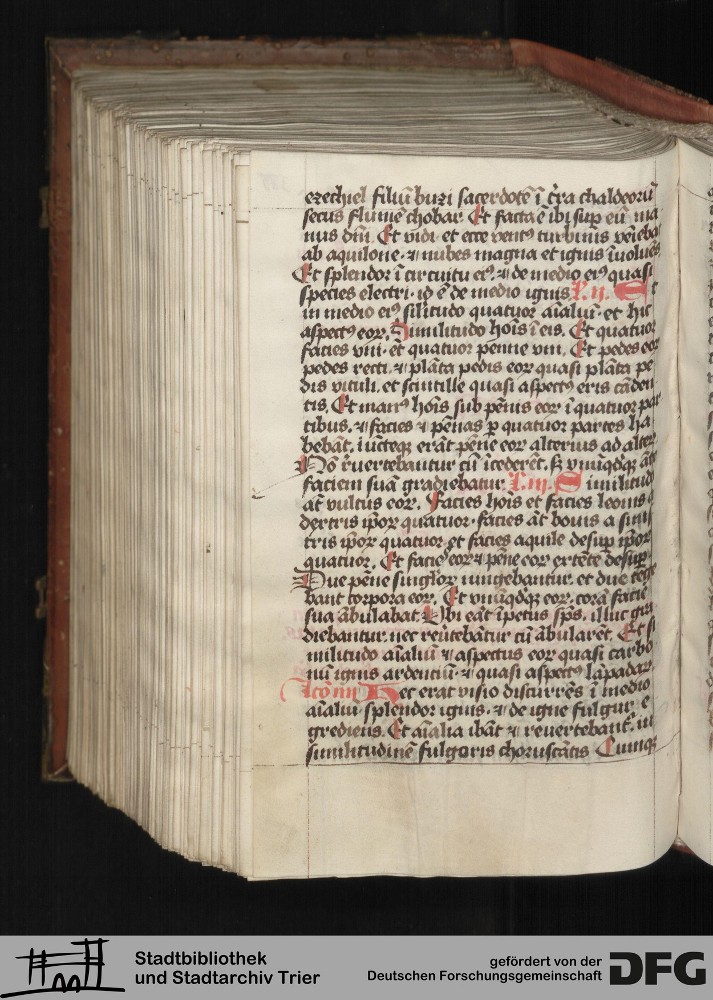 ezechiel filiū buzi sacerdotē ī t̄ra chaldeorū
secus flumē chobar. Et facta ē ibi sup eū ma
nus dn̄i. Et vidi et ecce ventꝰ turbinis veīebat
ab aquilone. ⁊ nubes magna et ignis īuoluēs
Et splendor ī circuitu eiꝰ. ⁊ de medio eiꝰ quasi
species electri. id ē de medio ignis. L. ij. Et
in medio eiꝰ sil̄itudo quatuor aīaliū. et hic
aspectꝰ eoꝝ. Similitudo hoīs ī eis. Et quatuor
facies vni. et quatuor penne vni. Et pedes eoꝝ
pedes recti. ⁊ plāta pedis eoꝝ quasi plāta pe
dis vituli. et scintille quasi aspectꝰ eris cāden
tis. Et manꝰ hoīs sub pēnis eoꝝ ī quatuor par
tibus. ⁊ facies ⁊ pēnas ꝑ quatuor partes ha
bebāt. iūcteqꝫ erāt pēne eoꝝ alterius ad alterꝝ
Nō r̄uertebantur cū īcederēt. sꝫ vnūqdqꝫ āte
faciem suā gradiebatur. L. iij. Similitudo
āt vultus eoꝝ. Facies hoīs et facies leonis a
dextris ip̄oꝝ quatuor. facies āt bouis a sinis
tris ip̄oꝝ quatuor. et facies aquile desup ip̄oꝝ
quatuor. Et facie eoꝝ ⁊ pēne eoꝝ extēte desup.
Due pēne singloꝝ iungebantur. et due tege
bant corpora eoꝝ. Et vnūqdqꝫ eoꝝ. corā facie
sua ābulabat. Vbi eāt īpetus sp̄s. illuc gra
diebantur. nec reūtebātur cū ābularēt. Et si
militudo aīaliū ⁊ aspectus eoꝝ quasi carbo
nū ignis ardentiū. ⁊ quasi aspectꝰ lāpadaꝝ.
Lc̄o iiij Hec erat visio discurrēs ī medio
aīaliū. splendor ignis. ⁊ de igne fulgur e
grediens. Et aīalia ibāt ⁊ reuertebant̄. in
similitudinē fulgoris choruscātis Cumqꝫ
Stadtbibliothek
und Stadtarchiv Trier
gefördert von der
Deutschen Forschungsgemeinschaft
DFG